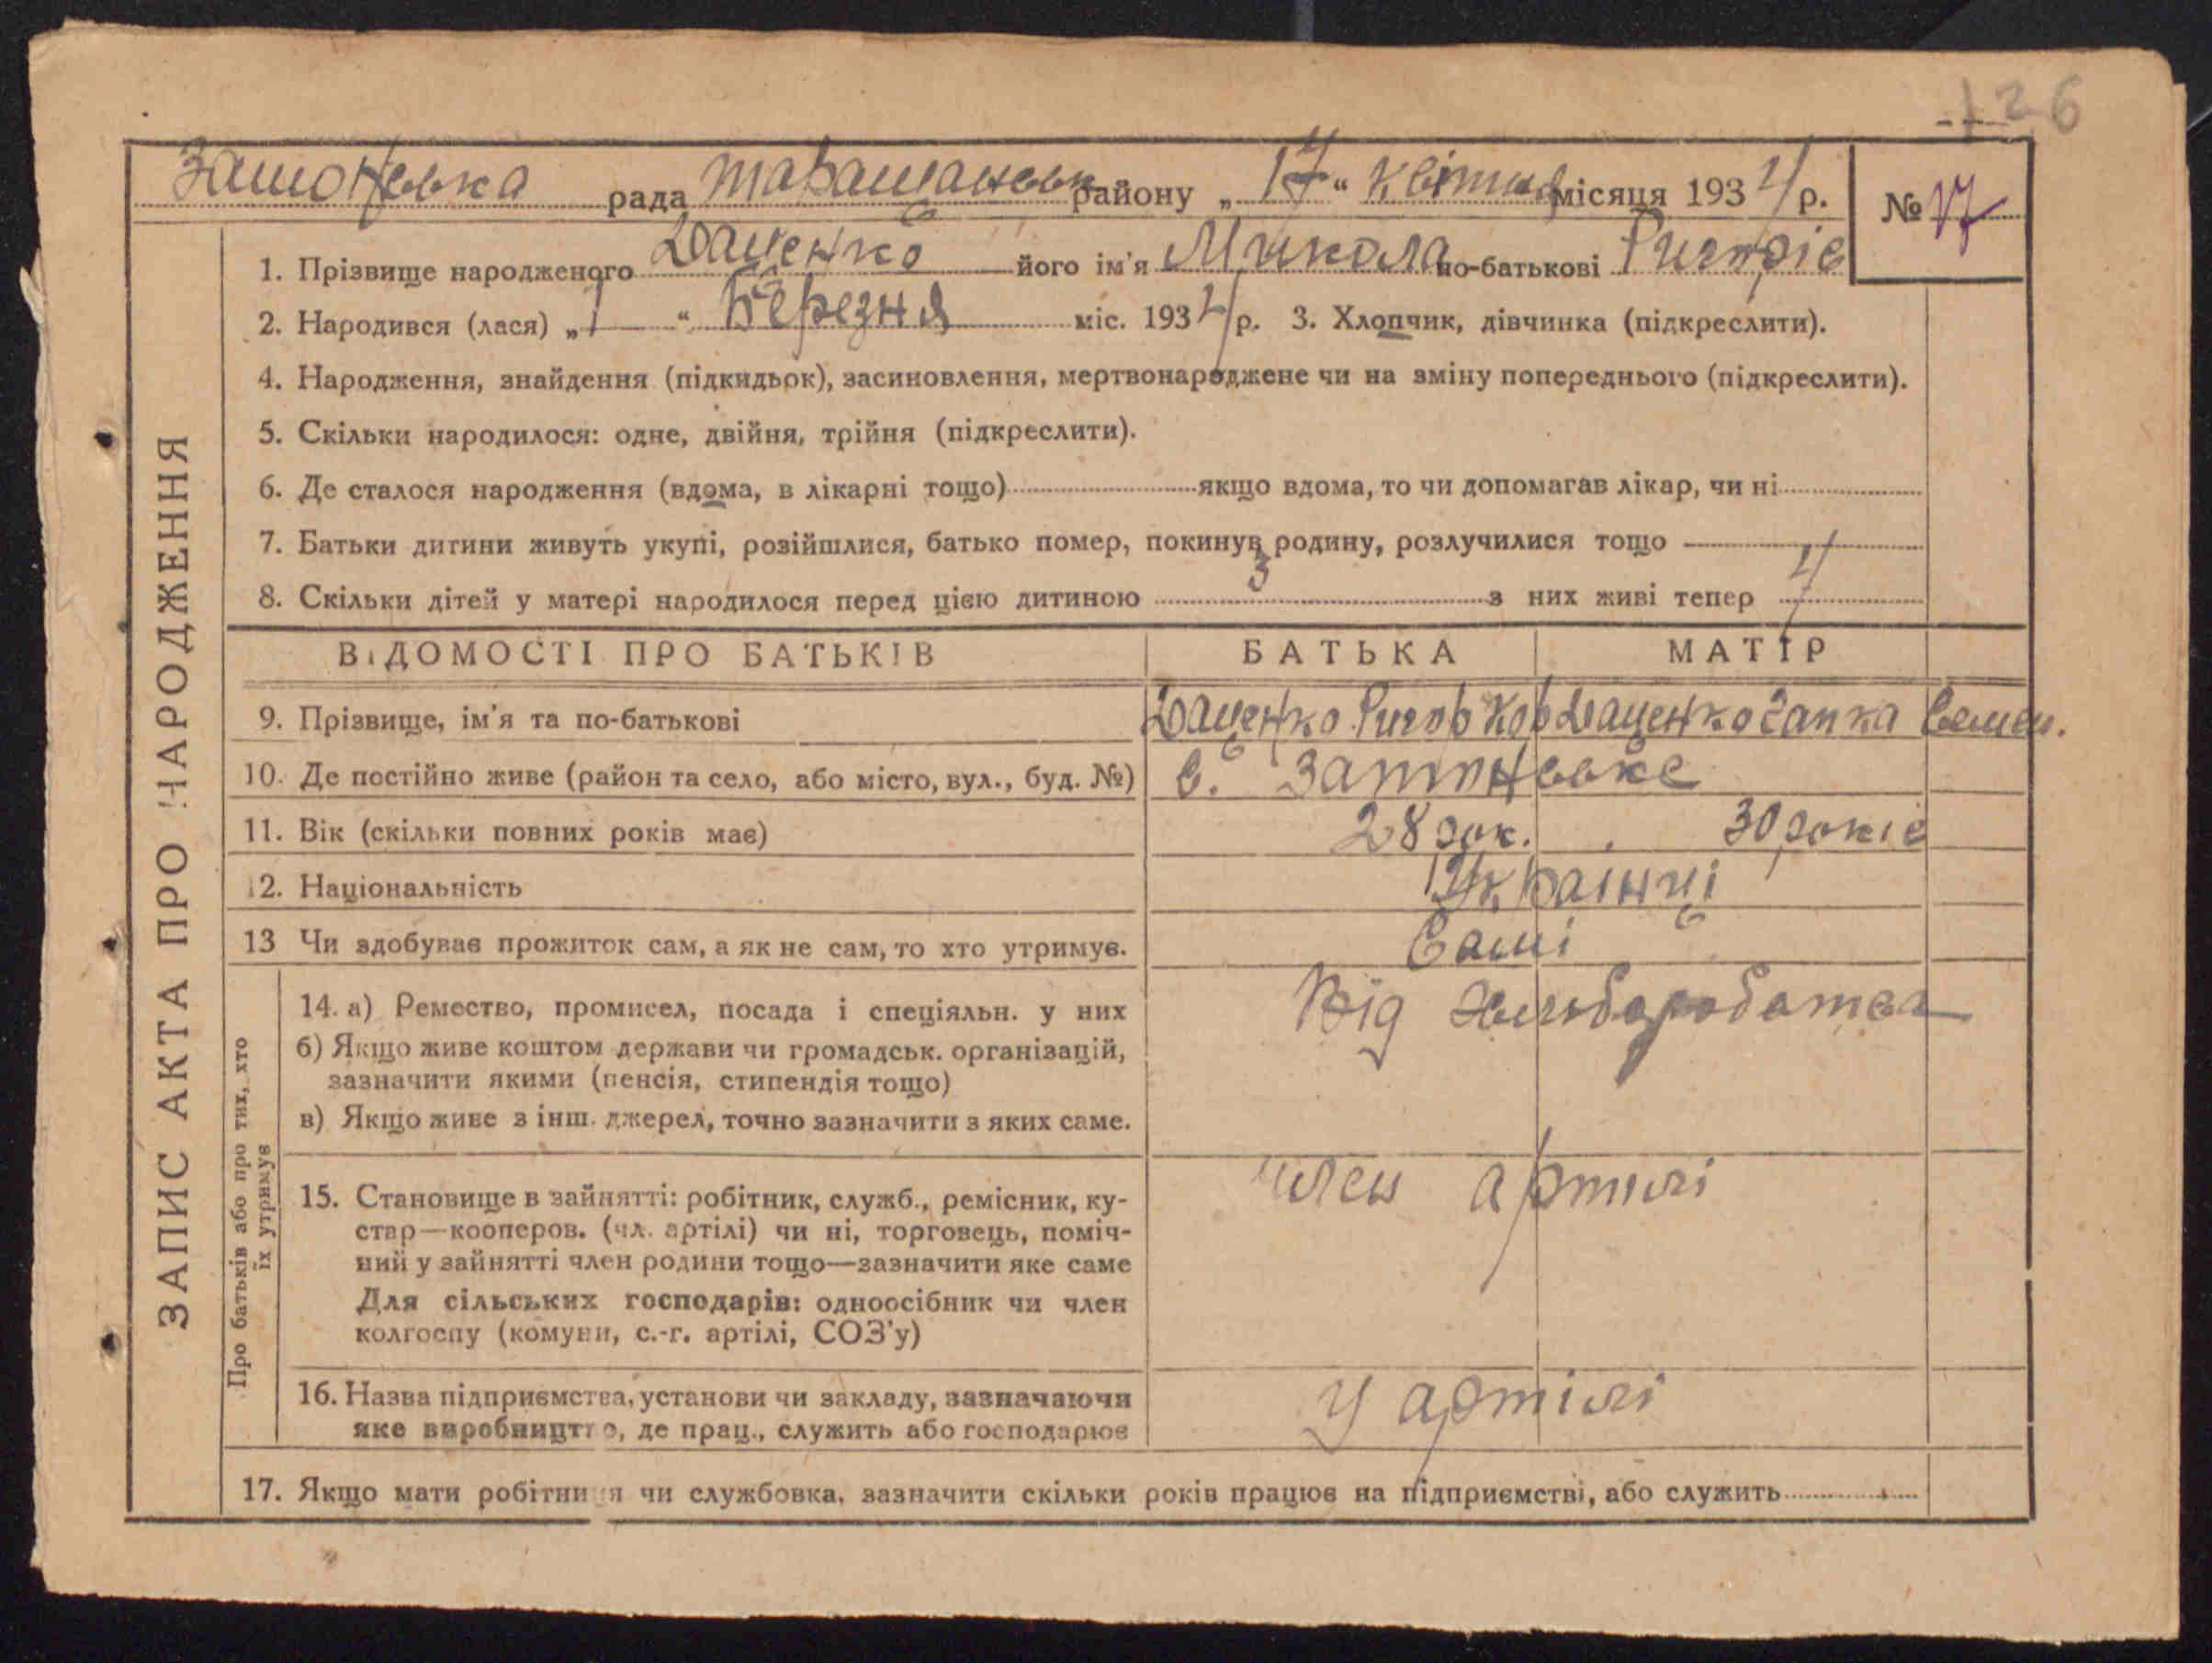 126
Затонська рада Таращанськ району „17“ Квітня місяця 1934 р. № 17
1. Прізвище народженого Даценко його ім'я Микола по-батькові Ригоріє
2. Народився (лася) „1“ Березня міс. 1934 р. 3. Хлопчик, дівчинка (підкреслити).
4. Народження, знайдення (підкидьок), засиновлення, мертвонароджене чи на зміну попереднього (підкреслити).
5. Скільки народилося: одне, двійня, трійня (підкреслити).
6. Де сталося народження (вдома, в лікарні тощо) якщо вдома, то чи допомагав лікар, чи ні
7. Батьки дитини живуть укупі, розійшлися, батько помер, покинув родину, розлучилися тощо
8. Скільки дітей у матері народилося перед цією дитиною 3 з них живі тепер 4
ЗАПИС АКТА ПРО НАРОДЖЕННЯ
ВІДОМОСТІ ПРО БАТЬКІВ БАТЬКА МАТІР
9. Прізвище, ім'я та по-батькові Даценко Ригор Кор Даценко Гапка Семен.
10. Де постійно живе (район та село, або місто, вул., буд. №) с. Затонське
11. Вік (скільки повних років має) 28 рок. 30 років
12. Національність Українці
13 Чи здобуває прожиток сам, а як не сам, то хто утримує. Самі
Про батьків або про тих, хто їх утримує
14. а) Ремество, промисел, посада і спеціяльн. у них Від хліборобства
б) Якщо живе коштом держави чи громадськ. організацій,
зазначити якими (пенсія, стипендія тощо)
в) Якщо живе з інш. джерел, точно зазначити з яких саме.
15. Становище в зайнятті: робітник, служб., ремісник, ку-
стар—кооперов. (чл. артілі) чи ні, торговець, поміч-
ний у зайнятті член родини тощо—зазначити яке саме
Для сільських господарів: одноосібник чи член
колгоспу (комуни, с.-г. артілі, СОЗ'у)
член артилі
16. Назва підприємства, установи чи закладу, зазначаючи
яке виробництво, де прац., служить або господарює
У артілі
17. Якщо мати робітниця чи службовка, зазначити скільки років працює на підприємстві, або служить